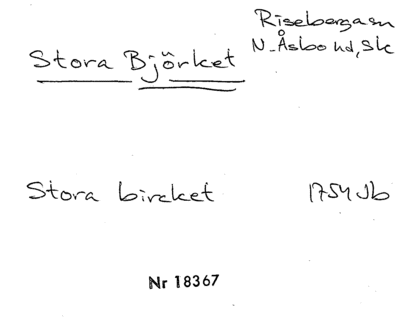 Riseberga sn
Stora Björket N. Åsbo hd, Sk
Stora bircket 1754 Jb
Nr 18367